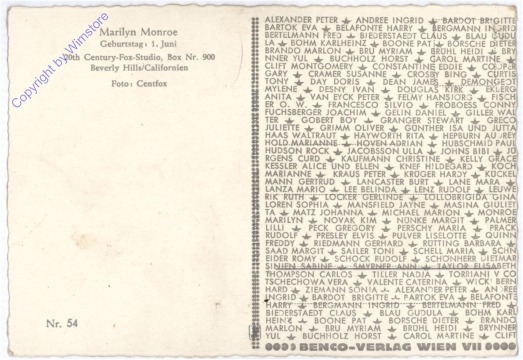 Marilyn Monroe
Geburtstag: 1. Juni
20th Century-Fox-Studio, Box Nr. 900
Beverly Hills/Californien
Foto: Centfox
Copyright by Wimstore
Nr. 54
ALEXANDER PETER ANDREE INGRID BARDOT BRIGITTE
BARTOK EVA BELAFONTE HARRY BERGMANN INGRID
BERTELMANN FRED BIEDERSTAEDT CLAUS BLAU GUDU
LA BÖHM KARLHEINZ BOONE PAT BORSCHE DIETER
BRANDO MARLON BRU MYRIAM BRÜHL HEIDI BRY
NNER YUL BUCHHOLZ HORST CAROL MARTINE
CLIFT MONTGOMERY CONSTANTINE EDDIE COOPER
GARY CRAMER SUSANNE CROSBY BING CURTIS
TONY DAY DORIS DEAN JAMES DEMONGEOT
MYLENE DESNY IVAN DOUGLAS KIRK EKBERG
ANITA VAN EYCK PETER FELMY HANSJÖRG FISCH
ER O. W. FRANCESCO SILVIO FROBOESS CONNY
FUCHSBERGER JOACHIM GELIN DANIEL GILLER WAL
TER GOBERT BOY GRANGER STEWART GRECO
JULIETTE GRIMM OLIVER GÜNTHER ISA UND JUTTA
HAAS WALTRAUT HAYWORTH RITA HEPBURN AUDREY
HOLD MARIANNE HOVEN ADRIAN HUBSCHMID PAUL
HUDSON ROCK JACOBSSON ULLA JOHNS BIBI JÜ
RGENS CURD KAUFMANN CHRISTINE KELLY GRACE
KESSLER ALICE UND ELLEN KNEF HILDEGARD KOCH
MARIANNE KRAUS PETER KRÜGER HARDY KÜCKEL
MANN GERTRUD LANCASTER BURT LANE MARA
LANZA MARIO LEE BELINDA LENZ RUDOLF LEUWE
RIK RUTH LOCKER GERLINDE LOLLOBRIGIDA GINA
LOREN SOPHIA MANSFIELD JAYNE MASINA GIULIET
TA MATZ JOHANNA MICHAEL MARION MONROE
MARILYN NOVAK KIM NÜNKE MARGIT PALMER
LILLI PECK GREGORY PERSCHY MARIA PRACK
RUDOLF PRESLEY ELVIS PULVER LISELOTTE QUINN
FREDDY RIEDMANN GERHARD RÜTTING BARBARA
SAAD MARGIT SAILER TONI SCHELL MARIA SCHN
EIDER ROMY SCHOCK RUDOLF SCHÖNHERR DIETMAR
SINJEN SABINE TAYLOR ELISABETH
THOMPSON CARLOS TILLER NADJA TORRIANI V CO
TSCHECHOVA VERA VALENTE CATERINA WICK BERN
HARD ZIEMANN SONJA ALEXANDER PETER ANDREE
INGRID BARDOT BRIGITTE BARTOK EVA BELAFONTE
HARRY BERGMANN INGRID BERTELMANN FRED
BIEDERSTAEDT CLAUS BLAU GUDULA BÖHM KARL
HEINZ BOONE PAT BORSCHE DIETER BRANDO
MARLON BRU MYRIAM BRÜHL HEIDI BRYNNER
YUL BUCHHOLZ HORST CAROL MARTINE CLIFT
BENCO-VERLAG WIEN VII